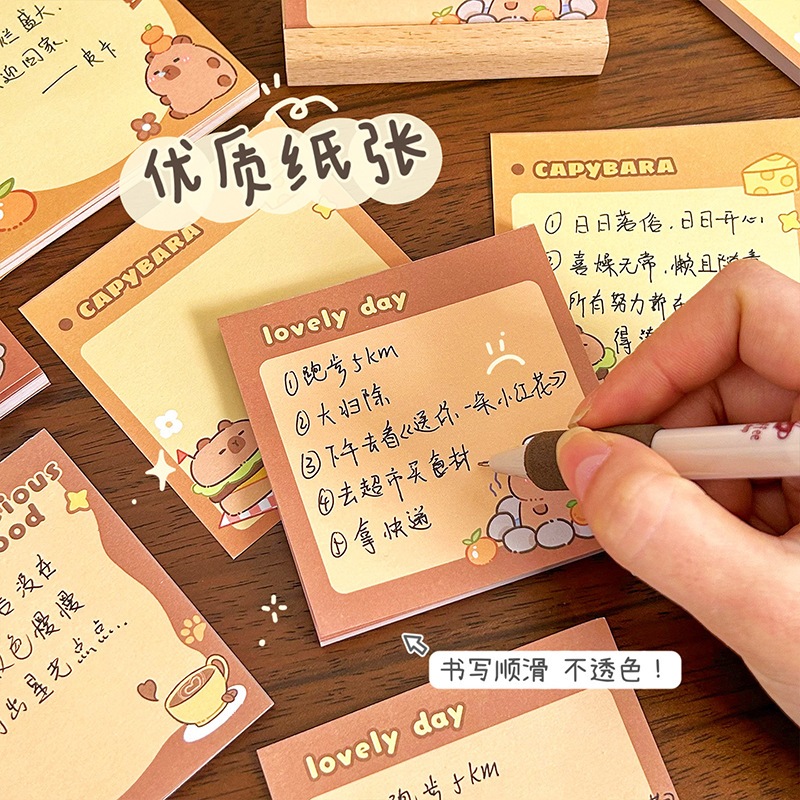 烂盛大，
迎回家.
——皮卡
优质纸张
CAPYBARA
① 日日落俗，日日开心，
喜燥无常，懒且随意
所有努力都在
得
CAPYBARA
lovely day
①跑步5km
②大扫除
③下午去看《送你一朵小红花》
④去超市买食材
⑤拿快递
没在
色慢慢
出星光点点...
书写顺滑 不透色！
lovely day
跑步5km